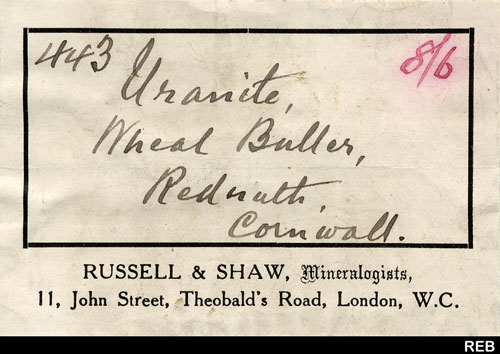 443
8/6
Uranite,
Wheal Buller,
Redruth,
Cornwall.
RUSSELL & SHAW, Mineralogists,
11, John Street, Theobald's Road, London, W.C.
REB